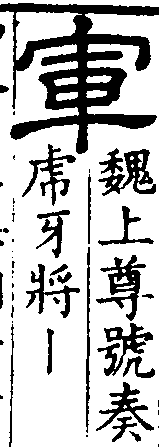 軍
魏上尊號奏
虎牙將丨